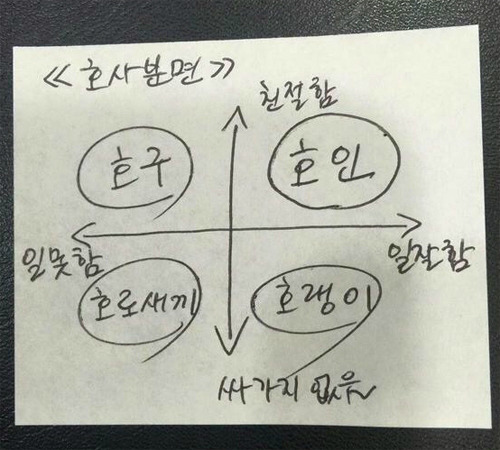 ≪호사분면≫
친절함
호구 호인
일못함 일잘함
호로새끼 호랭이
싸가지 없음